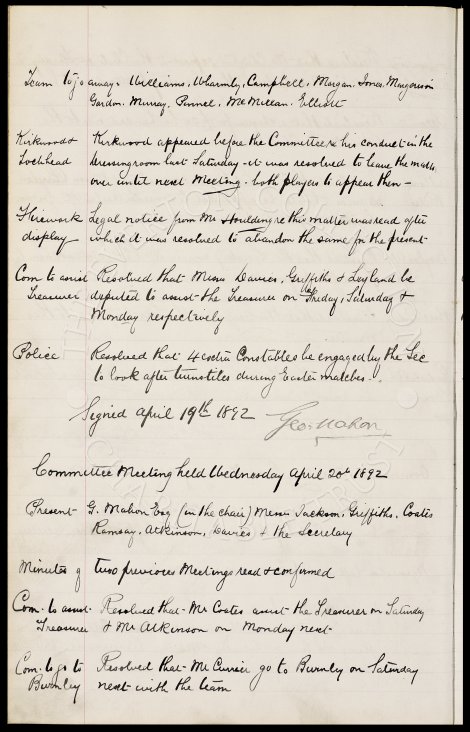 Team to go away. Williams, Wharmby, Campbell, Morgan, Jones, Mungerson
Gordon. Murray. Pinnel. McMillan. Elliott
Kirkwood & Kirkwood appeared before the Committee re his conduct in the
Lochhead dressingroom last Saturday - it was resolved to leave the matter
over until next Meeting - both players to appear then -
Firework Legal notice from Mr Houlding re this matter was read after
display which it was resolved to abandon the same for the present
Com to assist Resolved that Messrs Davies, Griffiths & Leyland be
Treasurer deputed to assist the Treasurer on Friday, Saturday &
Monday respectively
Police Resolved that 4 extra Constables be engaged by the Sec
to look after turnstiles during Easter matches.
Signed April 19th 1892 Geo. Mahon
Committee Meeting held Wednesday April 20th 1892
Present G. Mahon Esq (in the chair) Messrs Jackson, Griffiths, Coates
Ramsay, Atkinson, Davies & the Secretary
Minutes of two previous Meetings read & confirmed
Com. to assist Resolved that Mr Coates assist the Treasurer on Saturday
Treasurer & Mr Atkinson on Monday next
Com. to go to Resolved that Mr Currier go to Burnley on Saturday
Burnley next with the team